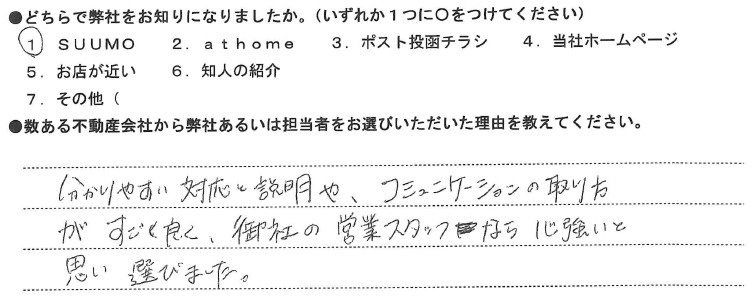 ●どちらで弊社をお知りになりましたか。（いずれか１つに〇をつけてください）
１ ＳＵＵＭＯ　２．ａｔｈｏｍｅ　３．ポスト投函チラシ　４．当社ホームページ
５．お店が近い　６．知人の紹介
７．その他（
●数ある不動産会社から弊社あるいは担当者をお選びいただいた理由を教えてください。
分かりやすい対応と説明や、コミュニケーションの取り方
がすごく良く、御社の営業スタッフなら心強いと
思い選びました。